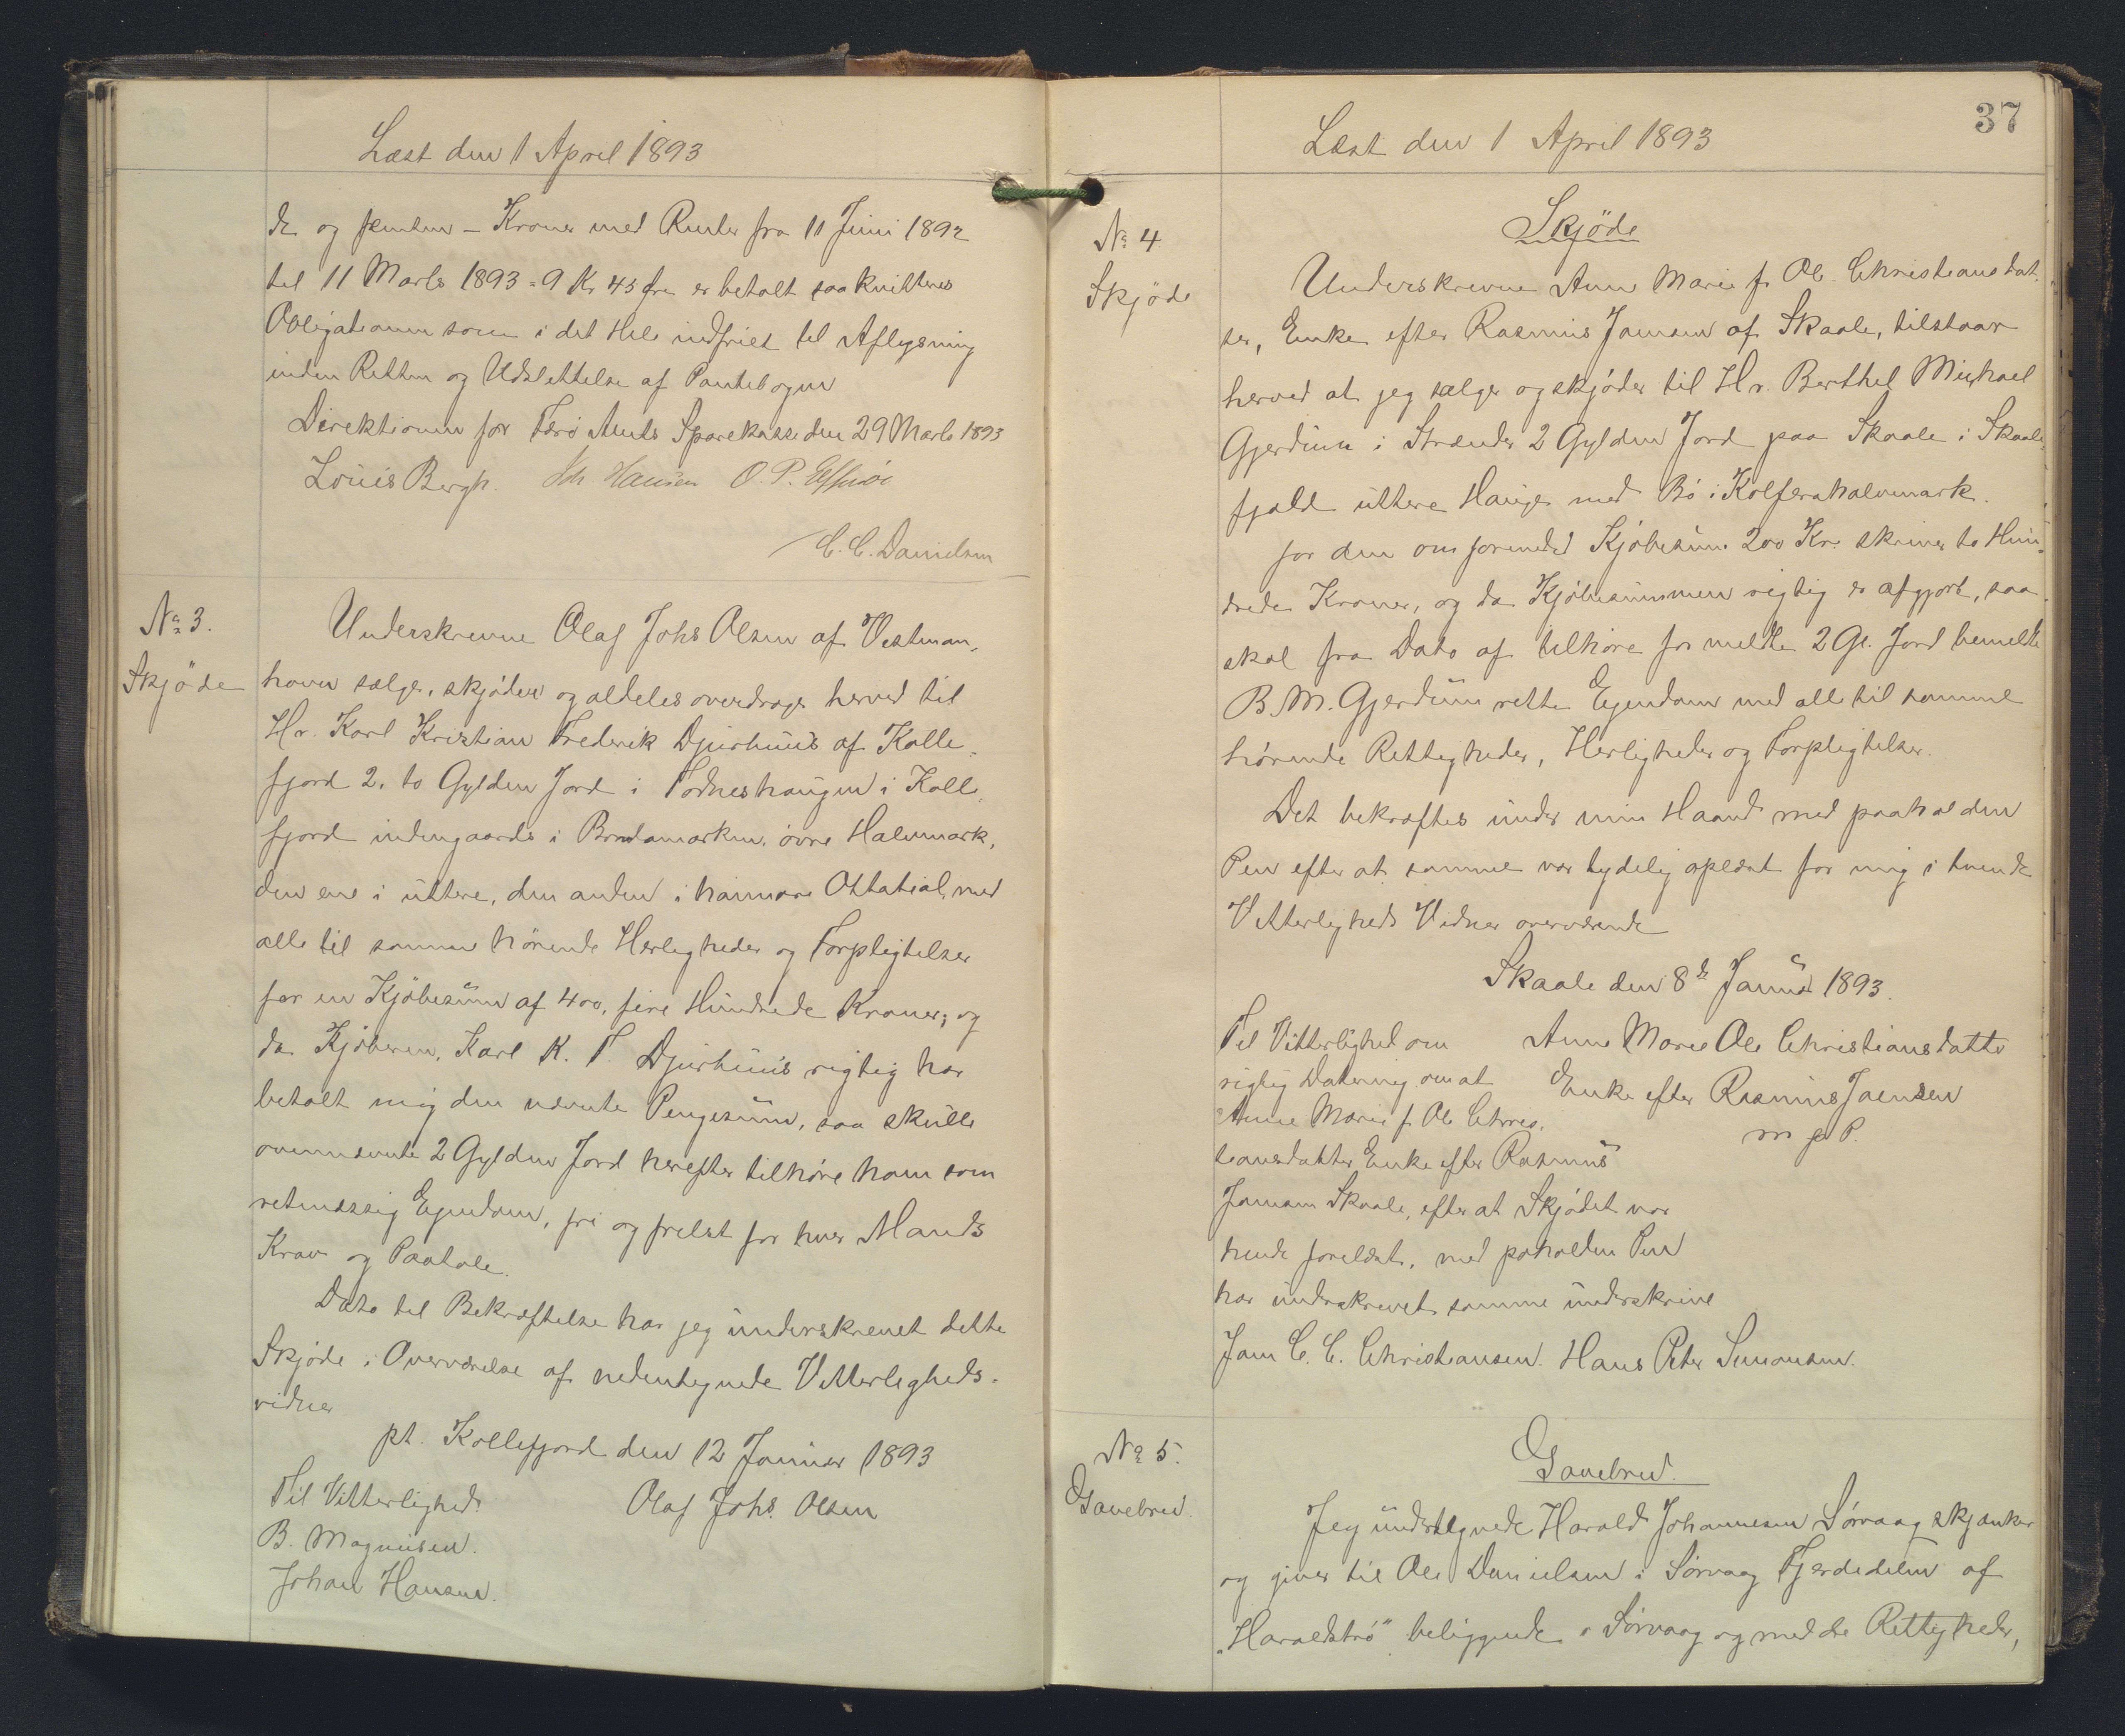 Læst den 1 April 1893
de og femten - Kroner med Renter fra 11 Juni 1892
til 11 Marts 1893 = 9 Kr 45 Øre er betalt saa kvitteres
Obligationen som i det Hele indfriet til Aflysning
inden Retten og Udslettelse af Pantebogen
Direktionen for Færø Amts Sparekasse den 29 Marts 1893
Louis Bergh. Hansen O. P. Effersøe
C. C. Danielsen
No 3.
Skjöde
Underskrevne Olaf Johs Olsen af Vestman,
havn sælger, skjöder og aldeles overdrager herved til
Hr. Karl Kristian Frederik Djurhuus af Kolle-
fjord 2. to Gylden Jord i Todneshaugen i Kolle,
fjord indengaards i Brandamarken, övre Halvmark,
den ene i uttere, den anden i haimare Ottatial, med
alle til samme hørende Herligheder og Forpligtelser
for en Kjöbesum af 400, fire Hundrede Kroner; og
da Kjöberen, Karl K. F. Djurhuus rigtig har
betalt mig den nævnte Pengesum, saa skulle
ovennævnte 2 Gylden Jord herefter tilhöre ham som
retmæssig Ejendom, fri og frelst for hver Mands
Krav og Paatale.
Dets til Bekræftelse har jeg underskrevet dette
Skjöde i Overværelse af nedentegnede Vitterligheds-
vidner
pt. Kollefjord den 12 Januar 1893
Til Vitterlighed.
Olaf Johs. Olsen
B. Magnusen.
Johan Hansen.
37
Læst den 1 April 1893
No 4
Skjöde
Skjöde
Underskrevne Anne Marie f. Ole Christiansdat-
ter, Enke efter Rasmus Joensen af Skaale, tilstaar
herved at jeg sælger og skjöder til Hr. Berthel Michael
Gjerdum i Strænder 2 Gylden Jord paa Skaale i Skaale-
fjald uttere Hauge med Bö i Kolferahalvmark.
for den om formeded Kjöbesum 200 Kr. skriver to Hun-
drede Kroner, og da Kjöbesummen rigtig er afgjort, saa
skal fra Dato af tilhöre for meldte 2 Gl. Jord bemeldte
B. M. Gjerdum rette Ejendom med alle til samme
hørende Rettigheder, Herligheder og Forpligtelser.
Det bekræftes under min Haand med paaholden
Pen efter at samme var tydelig oplæst for mig i tvende
Vitterligheds Vidner overværende
Skaale den 8de Januar 1893.
Til Vitterlighed om
Anne Marie Ole Christiansdatter
rigtig Datering om at
Enke efter Rasmus Joensen
Anne Marie f. Ole Chris,
m f P.
tiansdatter Enke efter Rasmus
Joensen Skaale, efter at Skjödet var
hende forelæst, med paholden Pen
har underskrevet samme underskrive
Joen C. C. Christiansen. Hans Peter Simonsen.
No 5.
Gavebrev.
Gavebrev.
Jeg undertegnede Harald Johannesen Sørvaag skjænker
og giver til Ole Danielsen i Sørvaag Fjerdedelen af
"Haraldströ" beliggende i Sørvaag og med de Rettigheder,